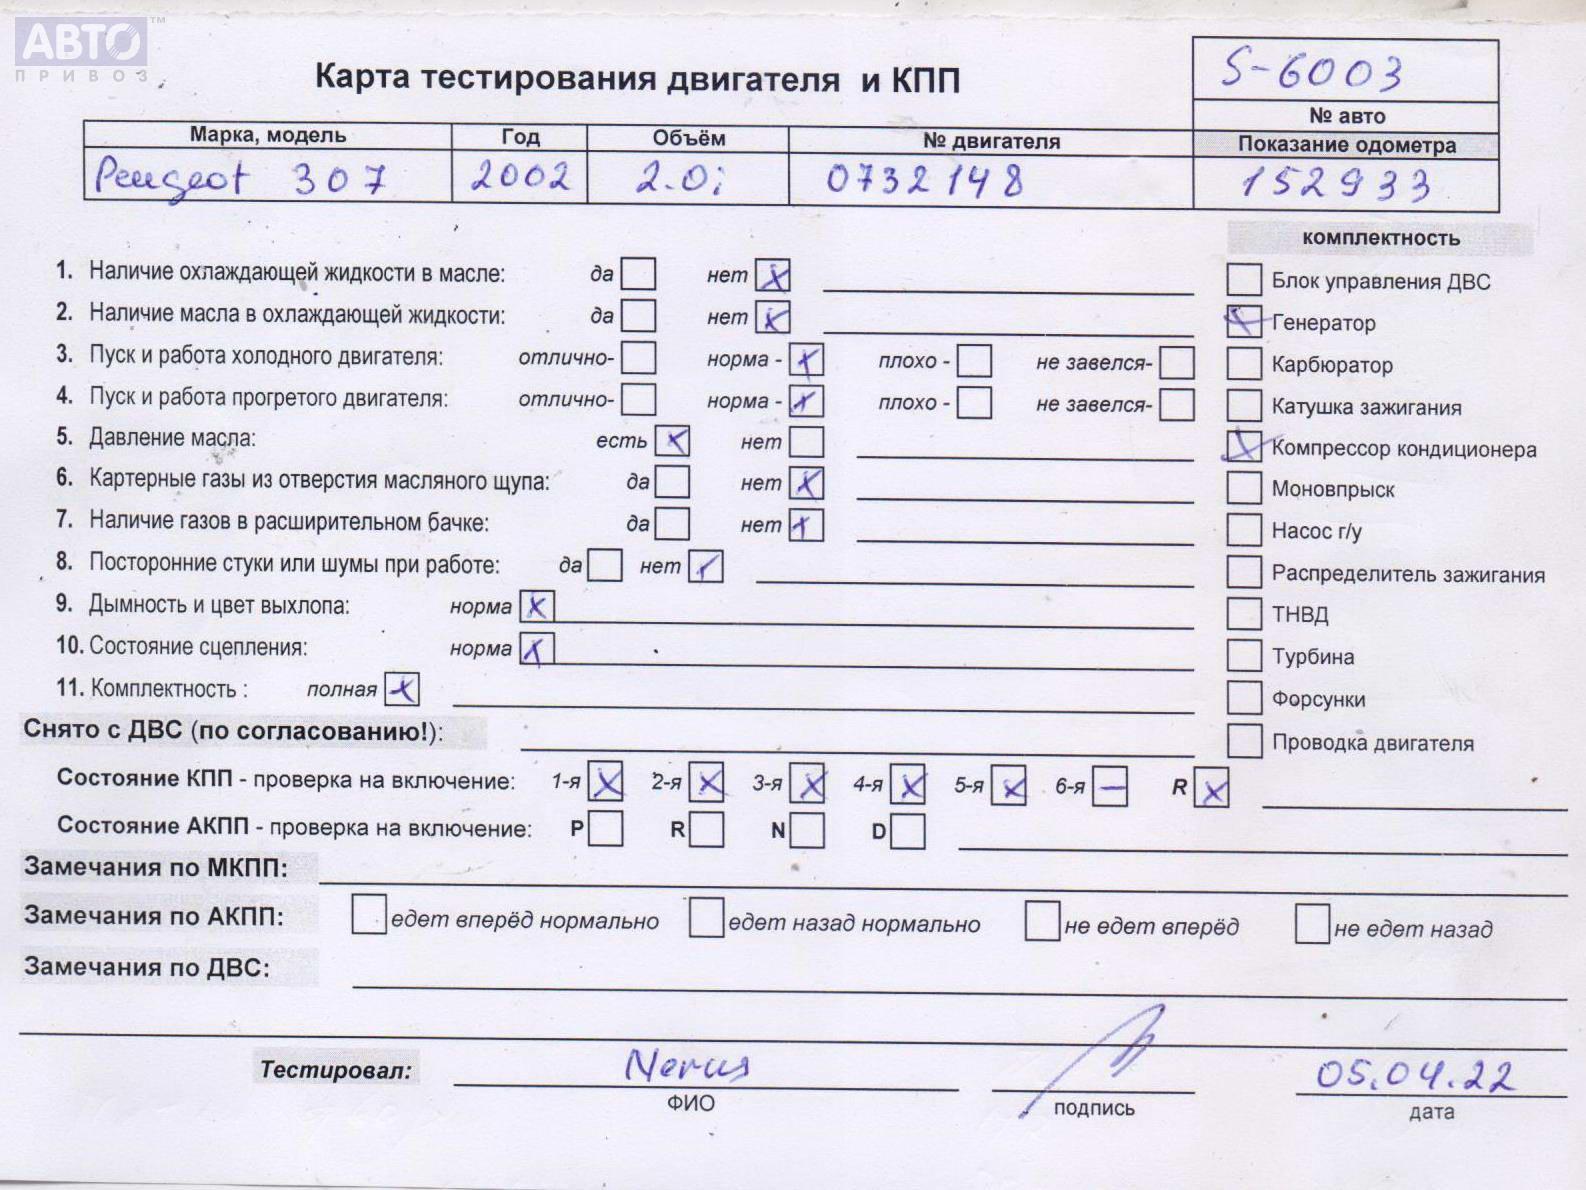 АВТО™
ПРИВОЗ
Карта тестирования двигателя и КПП
S-6003
№ авто
Марка, модель Год Объём № двигателя Показание одометра
Peugeot 307 2002 2.0i 0732148 152933
комплектность
1. Наличие охлаждающей жидкости в масле: да нет x
2. Наличие масла в охлаждающей жидкости: да нет x
3. Пуск и работа холодного двигателя: отлично- норма - x плохо - не завелся-
4. Пуск и работа прогретого двигателя: отлично- норма - x плохо - не завелся-
5. Давление масла: есть x нет
6. Картерные газы из отверстия масляного щупа: да нет x
7. Наличие газов в расширительном бачке: да нет x
8. Посторонние стуки или шумы при работе: да нет x
9. Дымность и цвет выхлопа: норма x
10. Состояние сцепления: норма x
11. Комплектность : полная x
Блок управления ДВС
x Генератор
Карбюратор
Катушка зажигания
x Компрессор кондиционера
Моновпрыск
Насос г/у
Распределитель зажигания
ТНВД
Турбина
Форсунки
Проводка двигателя
Снято с ДВС (по согласованию!):
Состояние КПП - проверка на включение: 1-я x 2-я x 3-я x 4-я x 5-я x 6-я — R x
Состояние АКПП - проверка на включение: P R N D
Замечания по МКПП:
Замечания по АКПП: едет вперёд нормально едет назад нормально не едет вперёд не едет назад
Замечания по ДВС:
Тестировал: 05.04.22
ФИО подпись дата